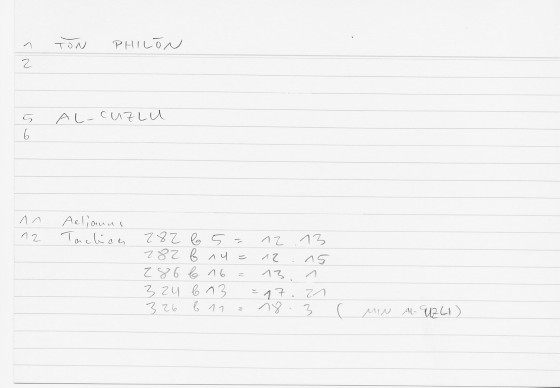 1 TŌN PHILŌN
2
5 AL-ʿUZLU
6
11 Aelianus
12 Tactica 282 b 5 = 12.13
282 b 14 = 12.15
286 b 16 = 13.1
324 b 13 = 17.21
326 b 11 = 18.3 (MIN AL-ʿUZLI)